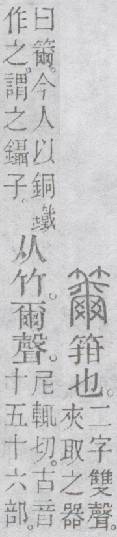 籋箝也。
二字雙聲。
夾取之器
曰籋。今人以銅鐵
作之。謂之鑷子。
从竹。爾聲。
尼輒切。古音
十五十六部。